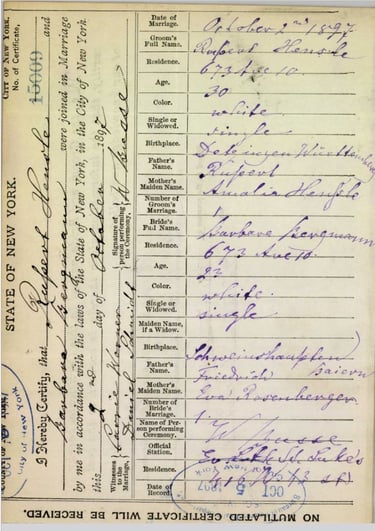 STATE OF NEW YORK.
CITY OF NEW YORK.
No. of Certificate,
15009
I Hereby Certify, that Rupert Hensle and
Barbara Bergmann were joined in Marriage
by me in accordance with the laws of the State of New York, in the City of New York,
this 2nd day of October 1897
Witnesses to the Marriage,
Signature of person performing the Ceremony,
Date of Marriage. October 2nd 1897
Groom's Full Name. Rupert Hensle
Residence. 673 Ave 10
Age. 30
Color. white
Single or Widowed. single
Birthplace.
Father's Name. Rupert
Mother's Maiden Name. Amalia
Number of Groom's Marriage. 1
Bride's Full Name. Barbara Bergmann
Residence. 673 Ave 10
Age. 23
Color. white
Single or Widowed. single
Maiden Name, if a Widow.
Birthplace.
Father's Name. Friedrich
Mother's Maiden Name. Eva Rosenberger
Number of Bride's Marriage. 1
Name of Person performing Ceremony.
Official Station. St. Luke's
Residence.
Date of Record.
OCT 5 1897
NO MUTILATED CERTIFICATE WILL BE RECEIVED.